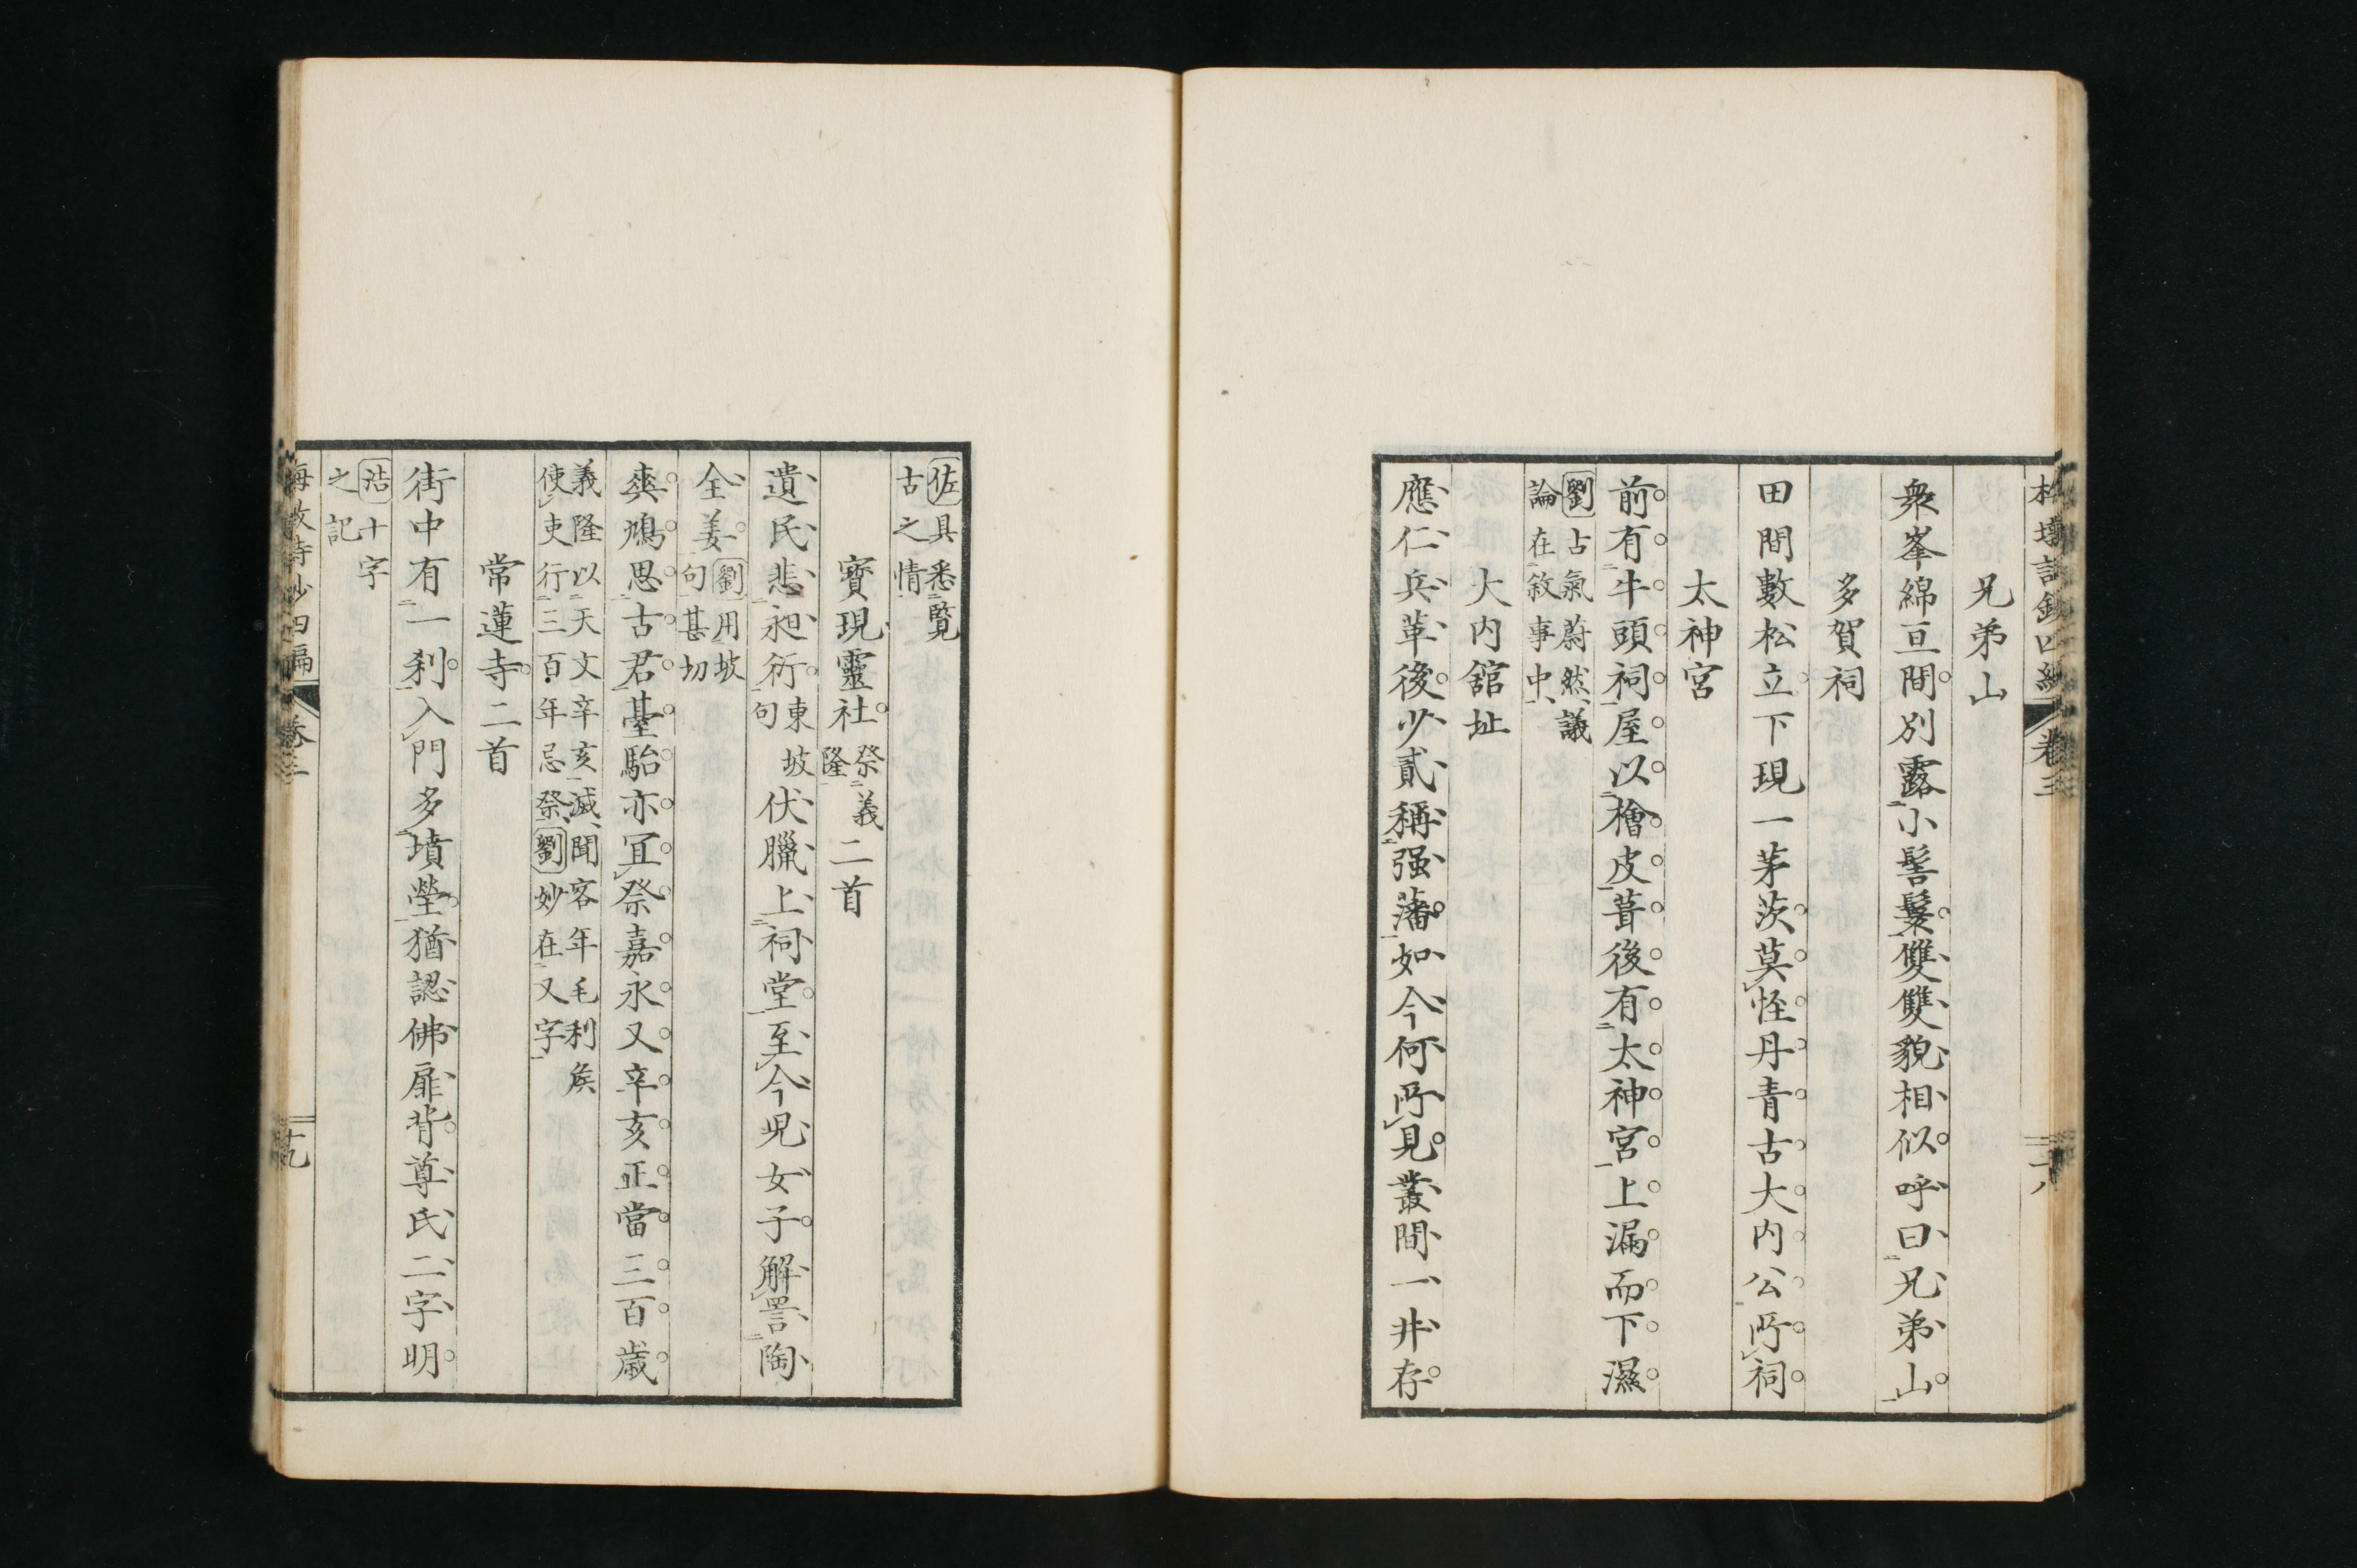 兄弟山
衆峯綿亘間別露小髻鬟雙雙貌相似呼曰兄弟山
多賀祠
田間數松立下現一茅茨莫怪丹青古大内公所祠
太神宮
前有牛頭祠屋以檜皮葺後有太神宮上漏而下濕
劉占氣蔚然議
論在敘事中
大内舘址
應仁兵革後少貳稱强藩如今何所見叢間一井存
佐具悉覽
古之情
寶現靈社祭義隆二首
遺民悲昶衎東坡句伏臘上祠堂至今兒女子解詈陶
全姜劉用坡句甚切
爽鳩思古君臺駘亦冝祭嘉永又辛亥正當三百歲
義隆以天文辛亥滅聞客年毛利矦
使吏行三百年忌祭劉妙在又字
常蓮寺二首
街中有一刹入門多墳塋猶認佛扉背尊氏二字明
浩十字
之記
卷三
十九
卷三
十八